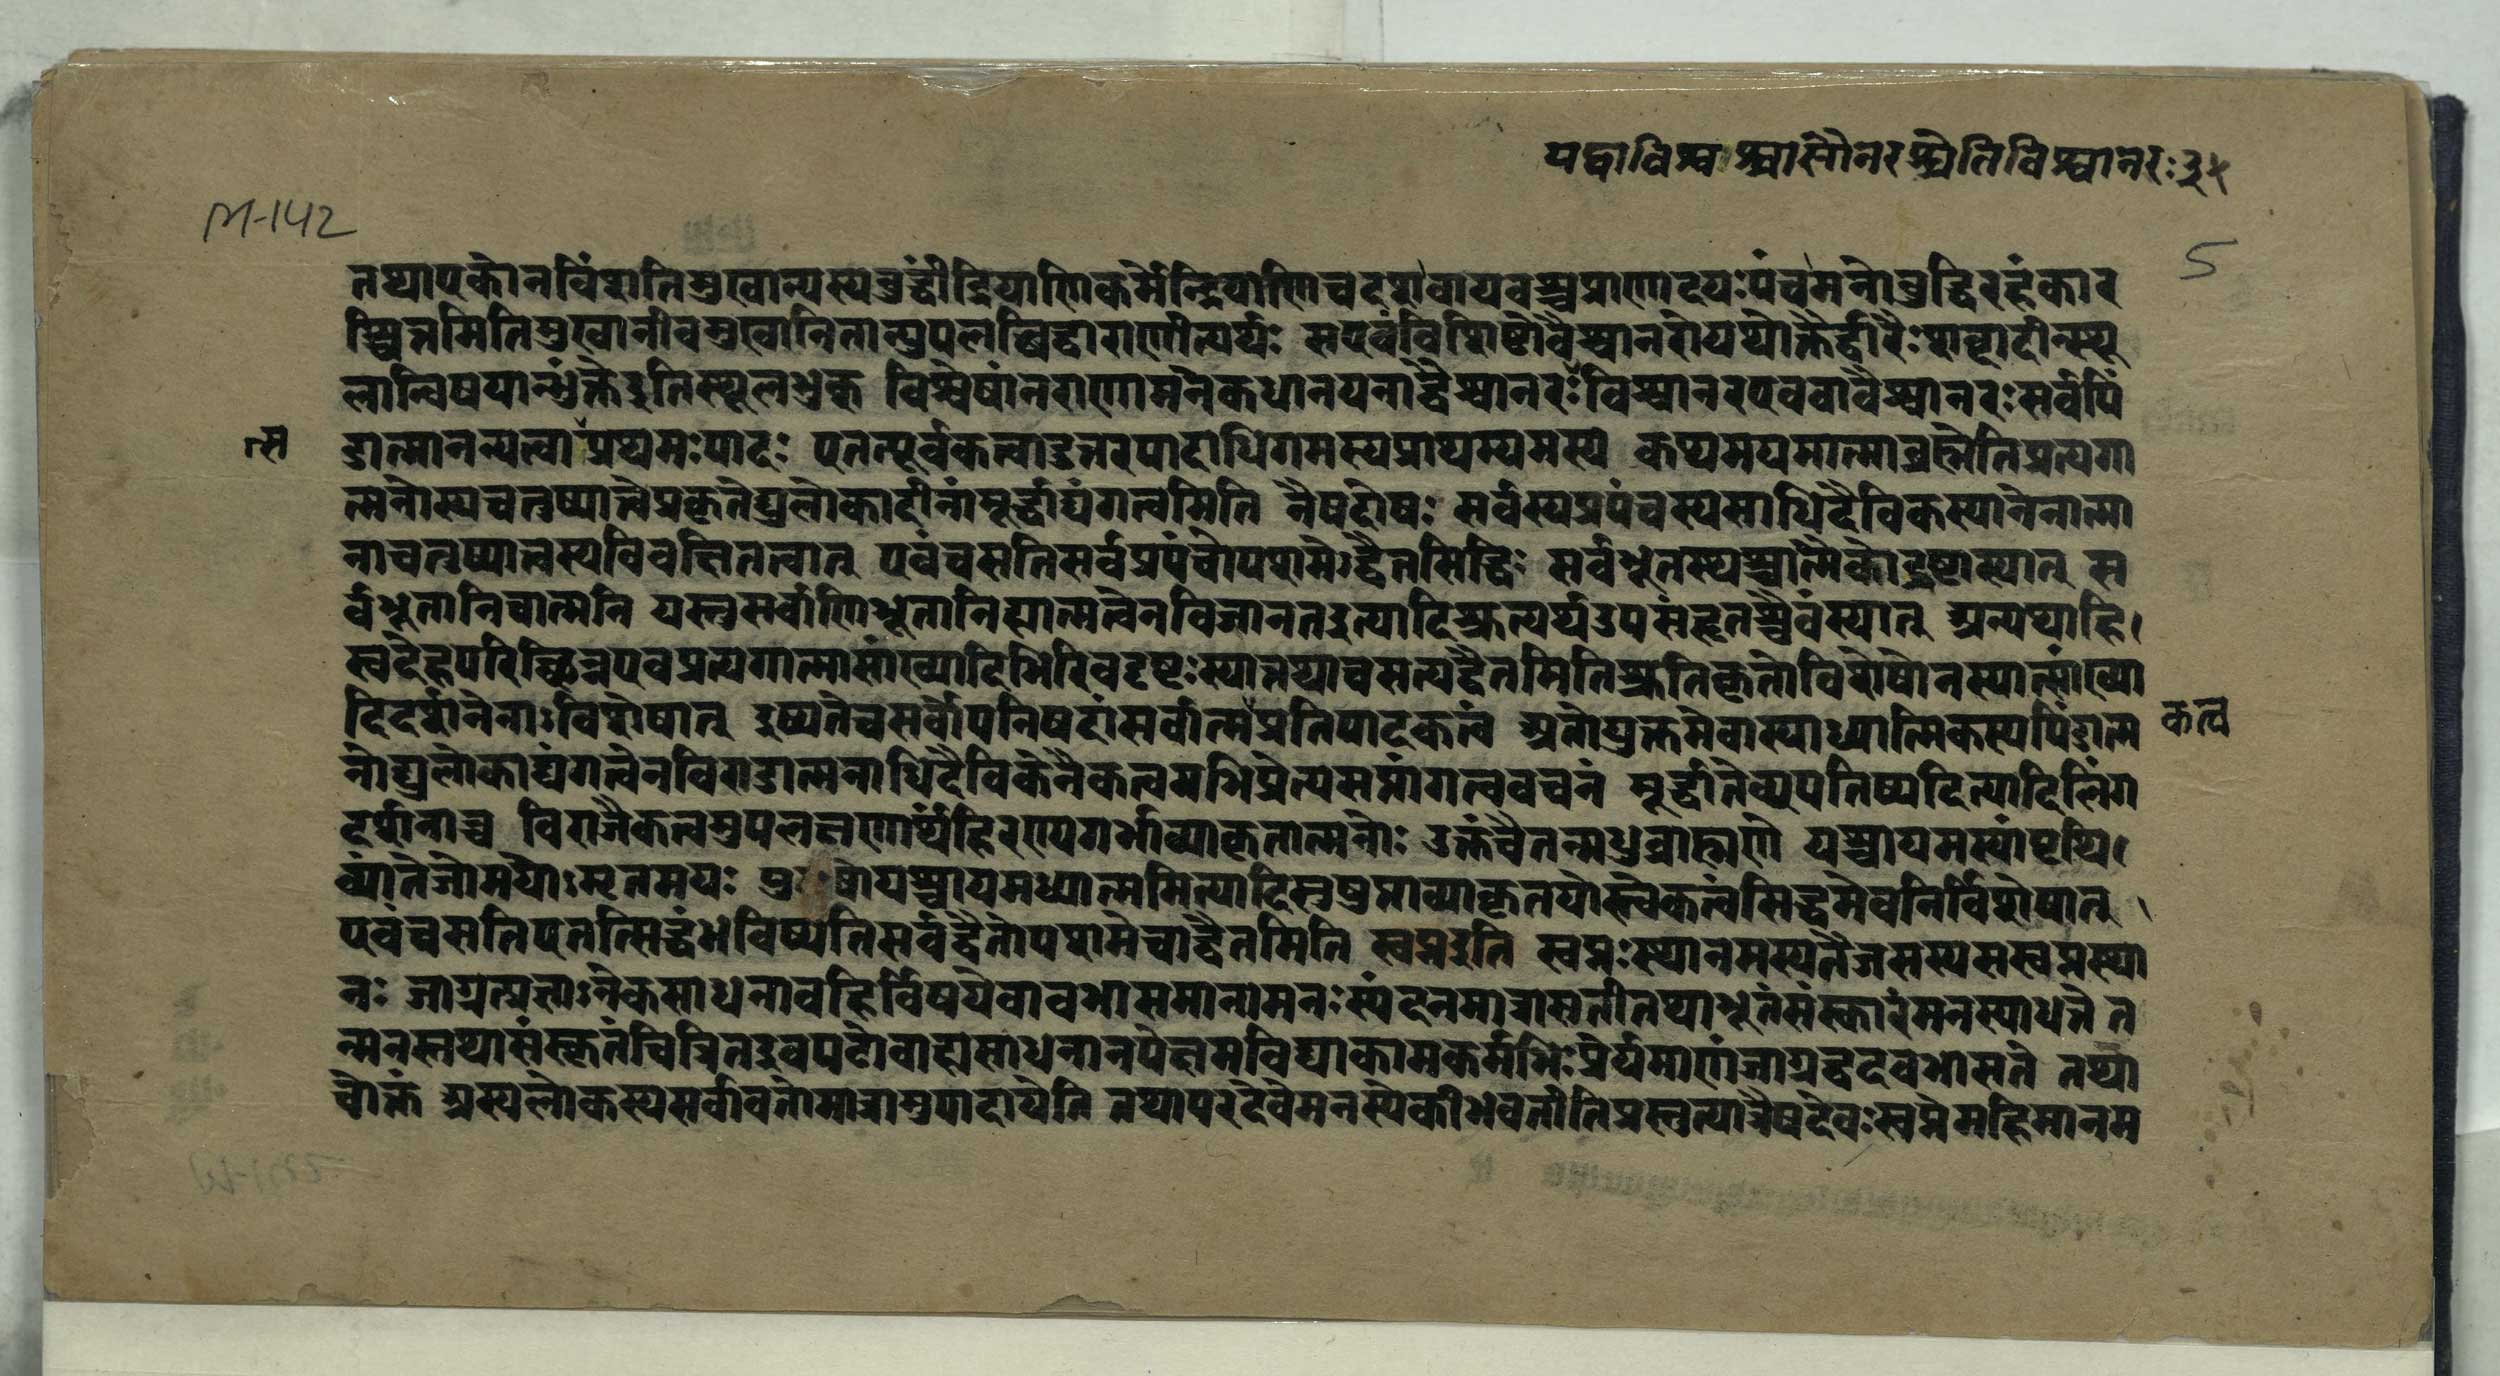 यद्वाविश्वश्चासौनरश्चेतिविश्वानरः ३५
M-142
5
तथाएकोनविंशतिमुखान्यस्यबुद्धींद्रियाणिकर्मेन्द्रियाणिचदशवायवश्चप्राणादयःपंचमनोबुद्धिरहंकार
श्चित्तमितिमुखानीवमुखानितान्युपलब्धिद्वाराणीत्यर्थः सएवंविशिष्टोवैश्वानरोयथोक्तैर्द्वारैःशब्दादीन्स्थू
लान्विषयान्भुंक्तेइतिस्थूलभुक् विश्वेषांनराणामनेकधानयनाद्वैश्वानरः विश्वानरएववावैश्वानरः सर्वपिं
त्स
डात्मानन्यत्वा प्रथमःपादः एतत्पूर्वकत्वादुत्तरपादाधिगमस्यप्राथम्यमस्य कथमयमात्माब्रह्मेतिप्रत्यगा
त्मनोस्यचतुष्पात्त्वेप्रकृतेद्युलोकादीनांमूर्द्धाद्यंगत्वमिति नैषदोषः सर्वस्यप्रपंचस्यसाधिदैविकस्यानेनात्म
नाचतुष्पात्त्वस्यविवक्षितत्वात् एवंचसतिसर्वप्रपंचोपशमेऽद्वैतसिद्धिः सर्वभूतस्थश्चात्मैकोदृष्टःस्यात् स
र्वभूतानिचात्मनि यस्तुसर्वाणिभूतानिह्यात्मत्वेनविजानतइत्यादिश्रुत्यर्थउपसंहृतश्चैवंस्यात् अन्यथाहि
स्वदेहपरिच्छिन्नएवप्रत्यगात्मासांख्यादिभिरिवदृष्टःस्यात्तथाचसत्यद्वैतमितिश्रुतिकृतोविशेषोनस्यात्सांख्या
दिदर्शनेनाऽविशेषात् इष्यतेचसर्वोपनिषदांसर्वात्मप्रतिपादकत्वं अतोयुक्तमेवास्याध्यात्मिकस्यपिंडात्म
कत्व
नोद्युलोकाद्यंगत्वेनविराडात्मनाधिदैविकेनैकत्वमभिप्रेत्यसप्तांगत्ववचनं मूर्द्धातेव्यपतिष्यदित्यादिलिंग
दर्शनाच्च विराजैकत्वमुपलक्षणार्थंहिरण्यगर्भाव्याकृतात्मनोः उक्तंचैतन्मधुब्राह्मणे यश्चायमस्यांपृथि
व्यांतेजोमयोऽमृतमयः पुरुषोयश्चायमध्यात्ममित्यादिसुषुप्ताव्याकृतयोस्त्वेकत्वंसिद्धमेवनिर्विशेषात्
एवंचसतिएतत्सिद्धंभविष्यतिसर्वद्वैतोपशमेचाद्वैतमिति स्वप्नइति स्वप्नःस्थानमस्यतैजसस्यसस्वप्नस्था
नः जाग्रत्प्रज्ञाऽनेकसाधनाबहिर्विषयेवावभासमानामनःस्पंदनमात्रासतीतथाभूतंसंस्कारंमनस्याधत्ते त
न्मनस्तथासंस्कृतंचित्रितइवपटोबाह्यसाधनानपेक्षमविद्याकामकर्मभिःप्रेर्यमाणंजाग्रद्वदवभासते तथा
चोक्तं अस्यलोकस्यसर्वावतोमात्रामुपादायेति तथापरेदेवेमनस्येकीभवतीतिप्रस्तुत्यात्रैषदेवःस्वप्नेमहिमानम